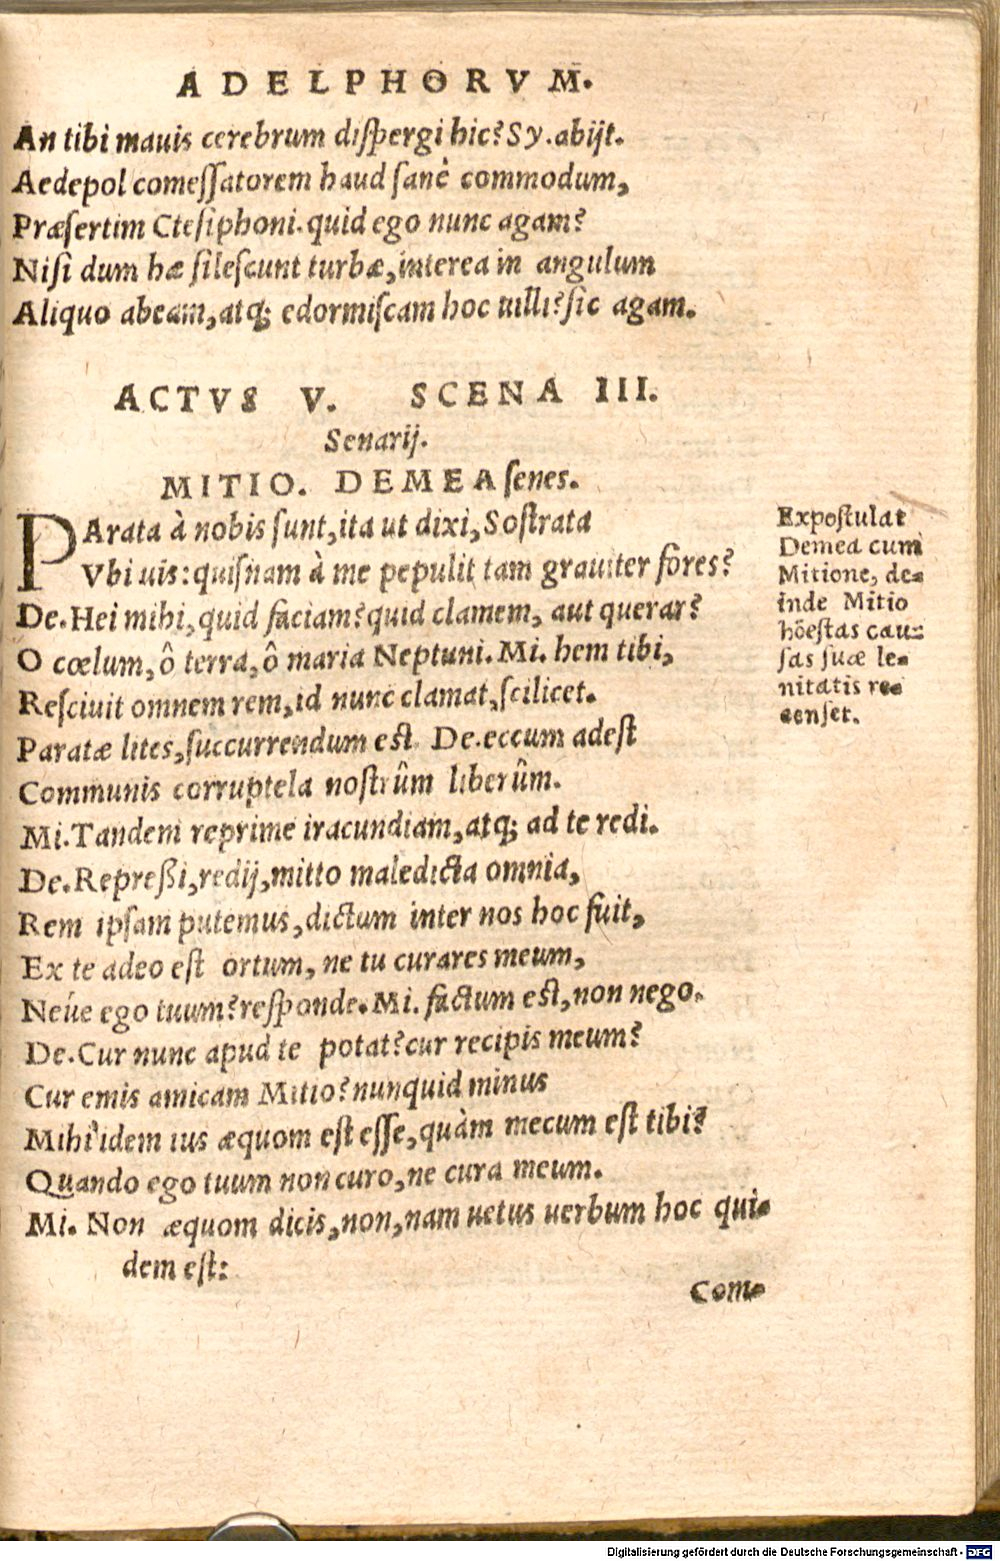 ADELPHORVM.
An tibi mauis cerebrum diſpergi hic? Sy. abijt.
Aedepol comeſſatorem haud ſanè commodum,
Præſertim Cteſiphoni. quid ego nunc agam?
Niſi dum hæ ſileſcunt turbæ, interea in angulum
Aliquo abeam, atq; edormiſcam hoc uilli? ſic agam.
ACTVS V. SCENA III.
Senarij.
MITIO. DEMEA ſenes.
PArata à nobis ſunt, ita ut dixi, Soſtrata
Vbi uis: quiſnam à me pepulit tam grauiter fores?
De. Hei mihi, quid faciam? quid clamem, aut querar?
O cœlum, ô terra, ô maria Neptuni. Mi. hem tibi,
Reſciuit omnem rem, id nunc clamat, ſcilicet.
Paratæ lites, ſuccurrendum eſt. De. eccum adeſt
Communis corruptela noſtrûm liberûm.
Mi. Tandem reprime iracundiam, atq; ad te redi.
De. Repreßi, redij, mitto maledicta omnia,
Rem ipſam putemus, dictum inter nos hoc fuit,
Ex te adeo eſt ortum, ne tu curares meum,
Neúe ego tuum? reſponde. Mi. factum eſt, non nego.
De. Cur nunc apud te potat? cur recipis meum?
Cur emis amicam Mitio? nunquid minus
Mihi idem ius æquom eſt eſſe, quàm mecum eſt tibi?
Quando ego tuum non curo, ne cura meum.
Mi. Non æquom dicis, non, nam uetus uerbum hoc qui-
dem eſt:
Com-
Expoſtulat
Demea cum
Mitione, de-
inde Mitio
hōeſtas cau-
ſas ſuæ le-
nitatis re-
cenſet.
Digitalisierung gefördert durch die Deutsche Forschungsgemeinschaft - DFG